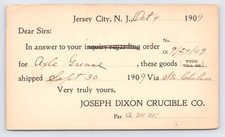 Jersey City, N. J., Oct 4 1909
Dear Sirs:
In answer to your inquiry regarding order
for Axle Grease, these goods were 9/24/09
shipped Sept. 30 1909 Via Str.
Very truly yours,
JOSEPH DIXON CRUCIBLE CO.
Per A.M.W.